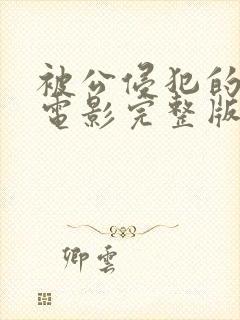 被公侵犯的
電影完整版
卿雲